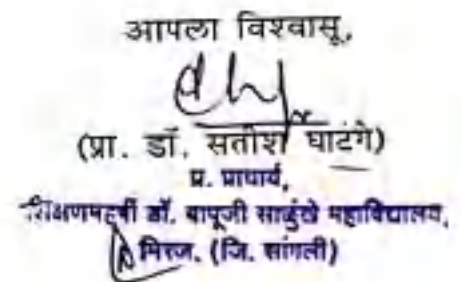 आपला विश्वासू,
(प्रा. डॉ. सतीश घाटगे)
प्र. प्राचार्य,
शिक्षणमहर्षी डॉ. बापूजी साळुंखे महाविद्यालय,
मिरज. (जि. सांगली)